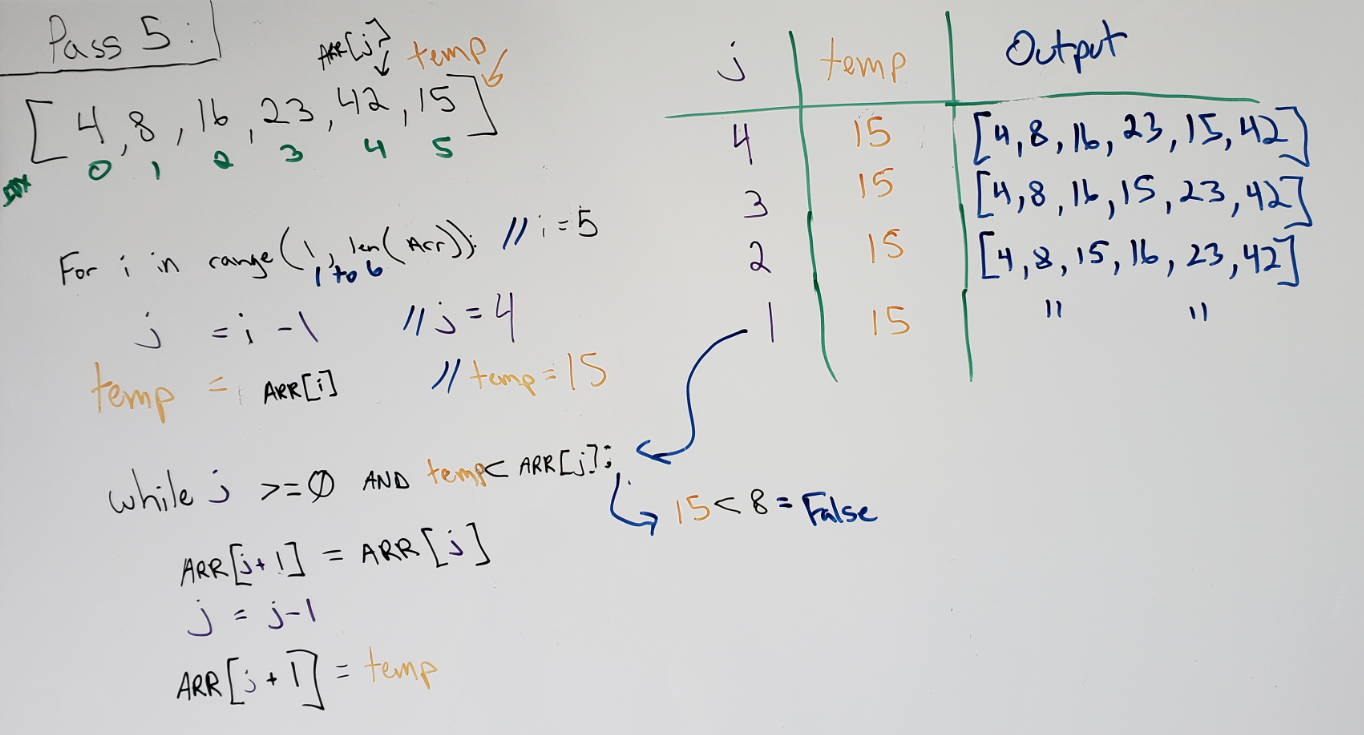 Pass 5:
ARR[j] temp
[4, 8, 16, 23, 42, 15]
0 1 2 3 4 5
For i in range(1, len(Arr)): // i = 5
1 to 6
j = i - 1 // j = 4
temp = ARR[i] // temp = 15
while j >= 0 AND temp < ARR[j]:
15 < 8 = False
ARR[j+1] = ARR[j]
j = j-1
ARR[j+1] = temp
j temp Output
4 15 [4, 8, 16, 23, 15, 42]
3 15 [4, 8, 16, 15, 23, 42]
2 15 [4, 8, 15, 16, 23, 42]
1 15 " "